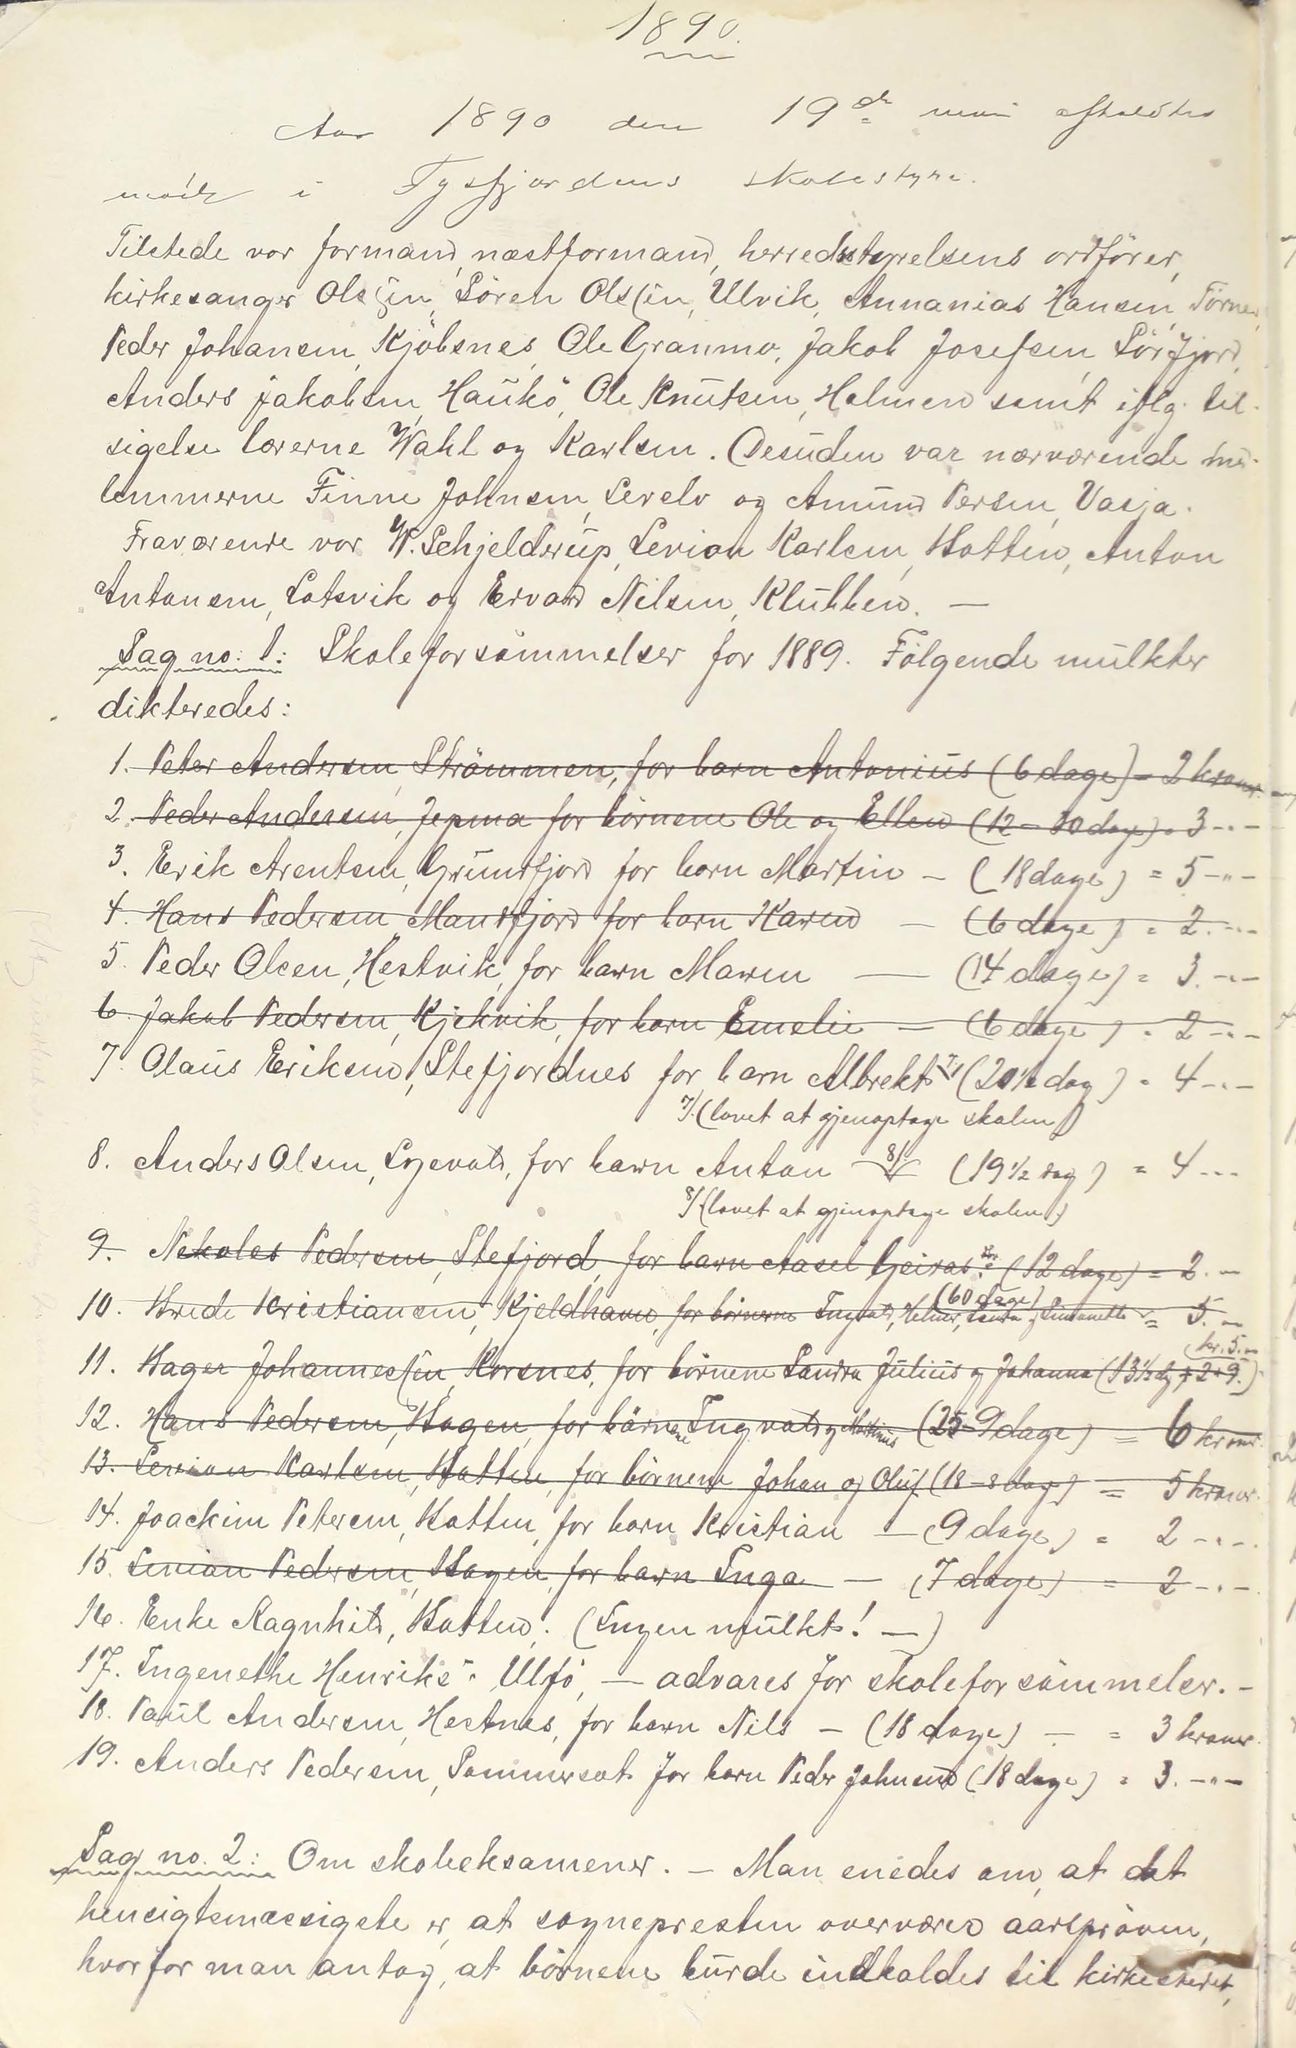 1890.
Aar 1890 den 19de mai afholdtes
møde i Tysfjordens skolestyre.
Tilstede var formand, næstformand, herredsstyrelsens ordfører,
kirkesanger Olsen, Sören Olsen, Ulvik, Annanias Hansen,
Peder Johansen, Kjöbsnes, Ole Granmo, Jakob Josefsen, Sörfjord,
Anders Jakobsen, Haukö, Ole Knutsen, Holmen samt iflg. til-
sigelse lærerne Wahl og Karlsen. Desuden var nærværende med-
lemmerne Finne Johnsen, Levelv og Amund Persen, Vasja.
Fraværende var W. Schjelderup, Levion Karlsen, Hatten, Anton
Antonsen, Lotsvik og Ervard Nilsen, Klubben. —
Sag no: 1: Skoleforsömmelser for 1889. Fölgende mulkter
dikteredes:
1. Peter Andersen Strömmen, for barn Antonius (6 dage) = 2 kroner.
2. Peder Andersen, Jepma for börnene Ole og Ellen (12 – 30 dage) = 3 -"-
3. Erik Arentsen, Grundfjord for barn Martin — (18 dage) = 5 -"-
4. Hans Pedersen Mansfjord for barn Karen — (6 dage) = 2. -"-
5. Peder Olsen, Hestvik, for barn Maren — (14 dage) = 3. -"-
6. Jakob Pedersen, Kjekvik, for barn Emelie — (6 dage) = 2 -"-
7. Olaus Eriksen, Stefjordnes for barn Albrekt 7/ (20½ dag) = 4 -"-
7/. (lovet at gjenoptage skolen)
8. Anders Olsen, for barn Anton 8/. (19 1/2 dag) = 4 -"-
8/. (lovet at gjenoptage skolen)
9. Nekoles Pedersen, Stefjord, for barn Aasel (12 dage) = 2. -
10. Hrede Kristiansen, Kjeldhavn, for börnene Ingvald, Helmer, (60 dage) = 5. -
11. Hager Johannessen Korsnes, for börnene Sandra Julius og Johanna (13½ dg + 2 + 9.) kr. 5.-
12. Hans Pedersen, Hagen, for börnene Ingvald og (25 – 9 dage) = 6 kroner.
13. Levion Karlsen, Hatten, for börnene Johan og Oluf (18 – 8 dag) = 5 kroner.
14. Joackim Petersen, Hatten, for barn Kristian — (9 dage) = 2 -"-
15. Levion Pedersen, Hagen, for barn Inga — (7 dage) = 2 -"-
16. Enke Ragnhild, Hatten. (Ingen mulkt! —)
17. Ingenethe Henriksn. Ulfö, — advares for skoleforsömmelser. —
18. Paul Andersen, Hestnes, for barn Nils — (18 dage) — = 3 kroner.
19. Anders Pedersen, Sommerset for barn Peder Johnsen (18 dage) = 3. -"-
Sag no. 2: Om skoleeksamener. — Man enedes om, at det
hensigtsmæssigste er, at sognepresten overværer aarspröven,
hvorfor man antog, at börnene burde indkaldes til kirkestedet,